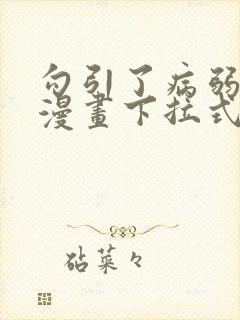 勾引了病弱
漫畫下拉式
砧菜々